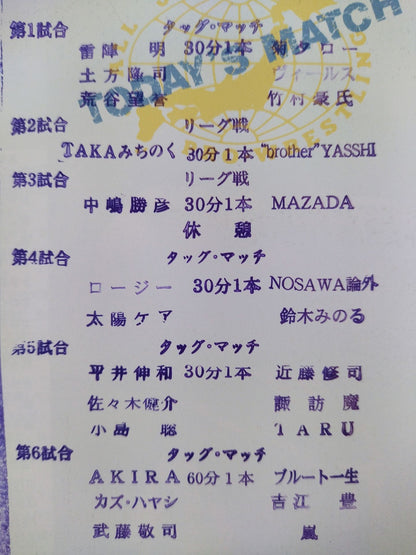 TODAY'S MATCH
第1試合 タッグ・マッチ
雷陣 明 30分1本 菊タロー
土方隆司 ヴィールス
荒谷望誉 竹村豪氏
第2試合 リーグ戦
TAKAみちのく 30分1本 "brother"YASSHI
第3試合 リーグ戦
中嶋勝彦 30分1本 MAZADA
休憩
第4試合 タッグ・マッチ
ロージー 30分1本 NOSAWA論外
太陽ケア 鈴木みのる
第5試合 タッグ・マッチ
平井伸和 30分1本 近藤修司
佐々木健介 諏訪魔
小島 聡 TARU
第6試合 タッグ・マッチ
AKIRA 60分1本 ブルート一生
カズ・ハヤシ 吉江 豊
武藤敬司 嵐